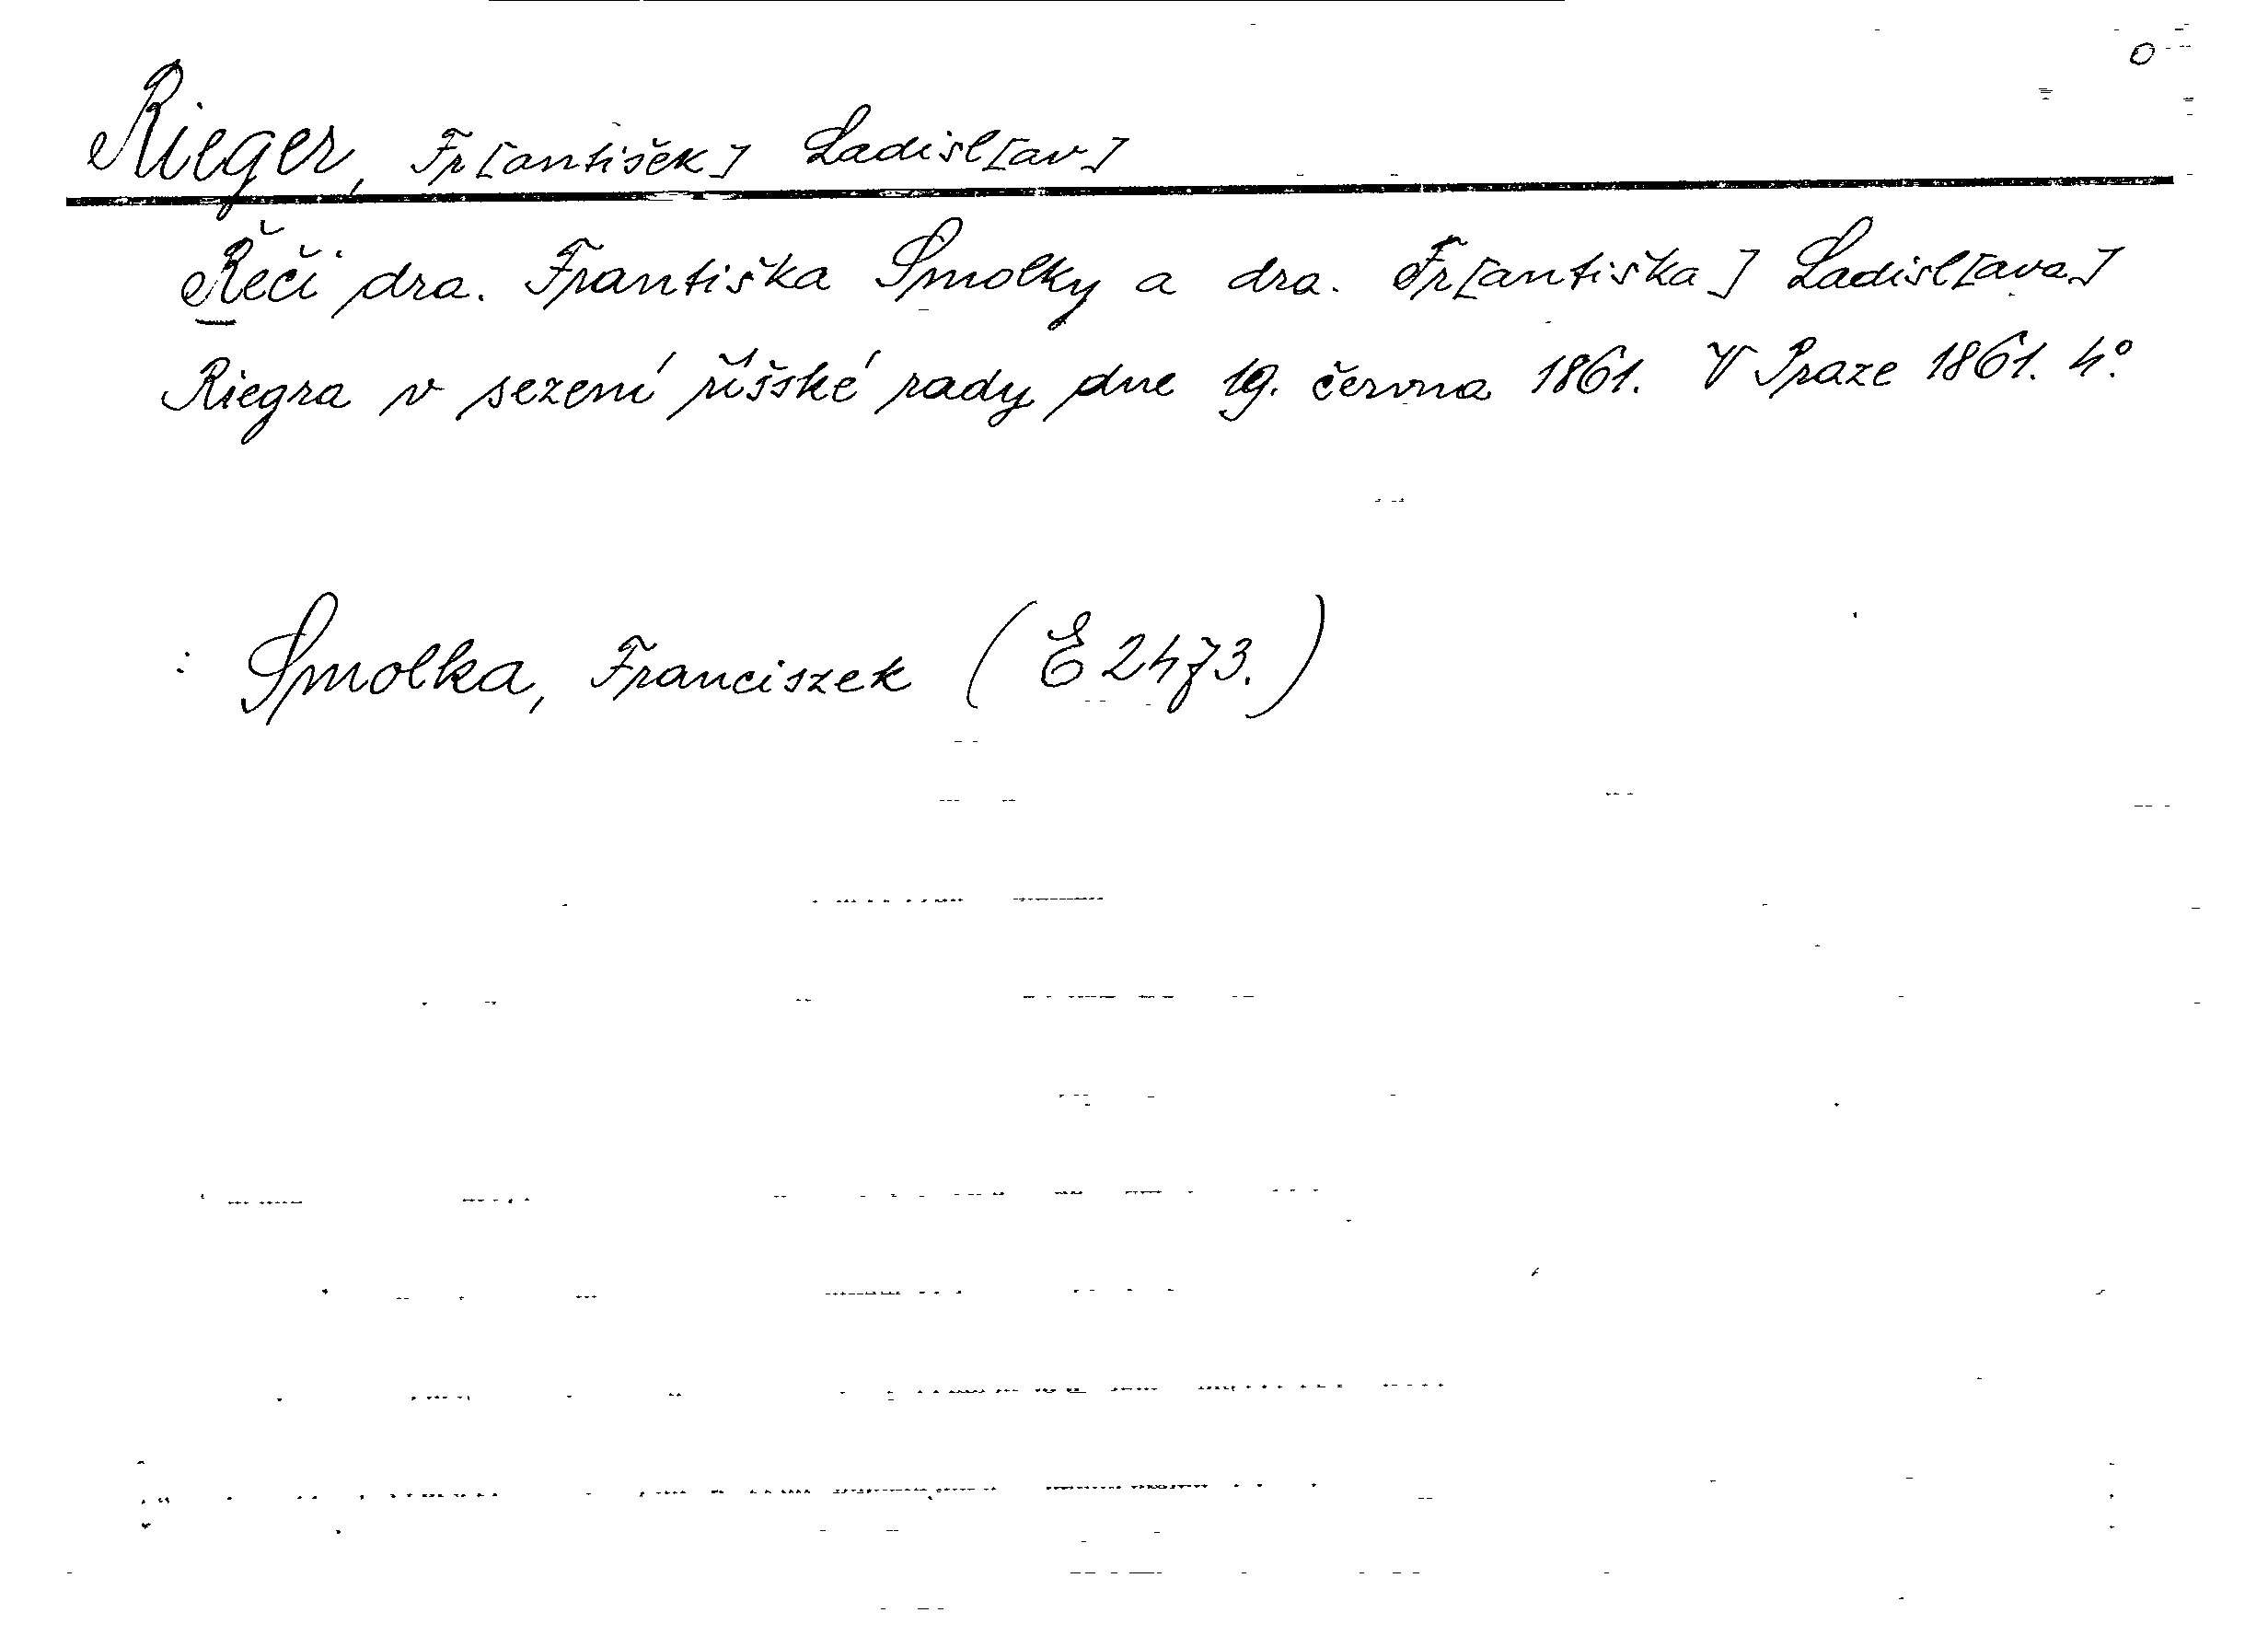 Rieger, Fr[antišek] Ladisl[av]
Řeči dra. Františka Smolky a dra. Fr[antiška] Ladisl[ava]
Riegra v sezení říšské rady dne 19. června 1861. V Praze 1861. 4°.
: Smolka, Franciszek (E 2473.)